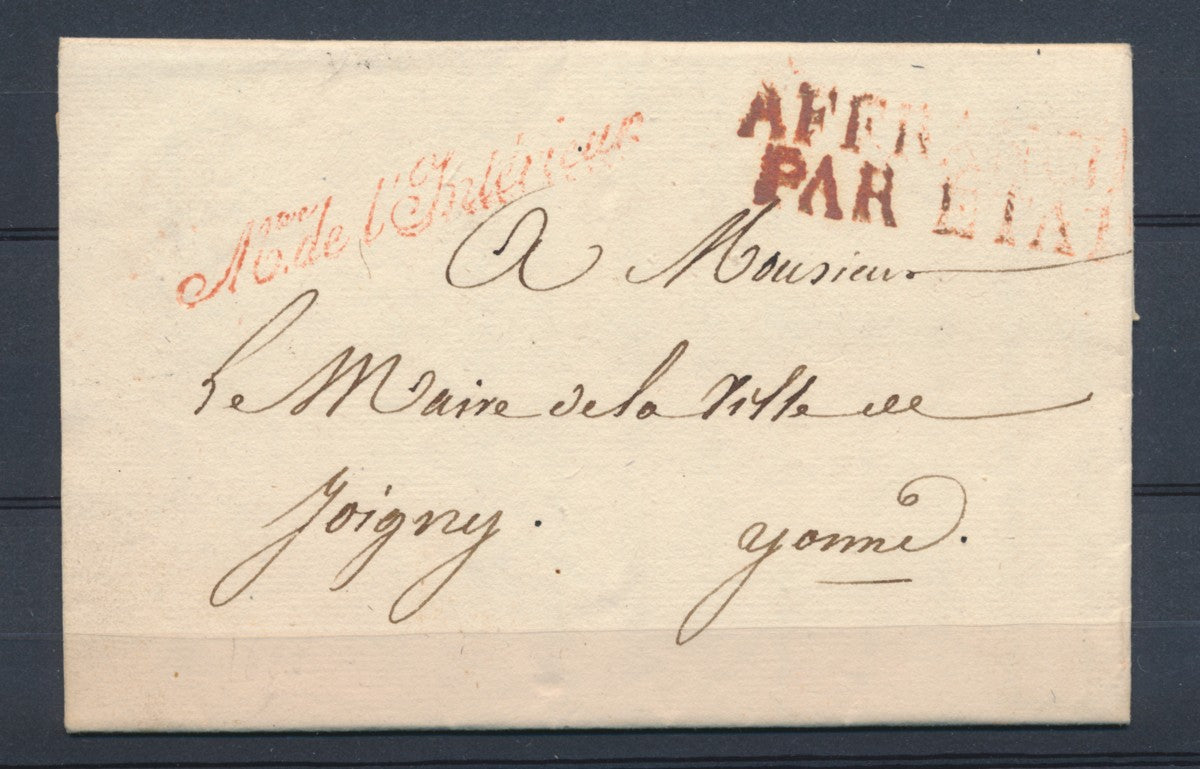 M.nrey de l'Intérieur
AFFRANCHI
PAR ETAT
A Monsieur
Le Maire de la Ville de
Joigny. Yonne.